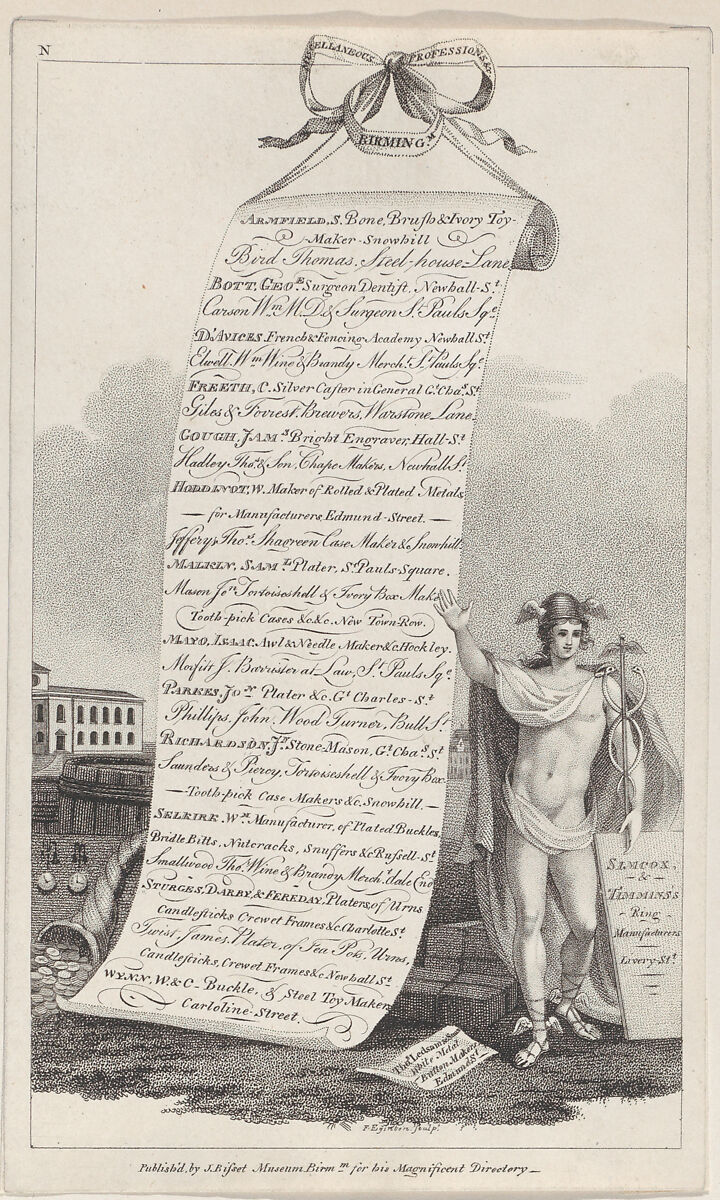 N
MISCELLANEOUS PROFESSIONS &c
BIRMING.M
ARMFIELD, S. Bone, Brush & Ivory Toy-
Maker-Snowhill
Bird Thomas, Steel-house-Lane
BOTT, GEO.E Surgeon Dentist, Newhall-S.t
Carson W.m M.D. & Surgeon S.t Pauls Sq.e
D'AVICES. French & Fencing Academy Newhall S.t
Elwell, W.m Wine & Brandy Merch.t S.t Pauls Sq.e
FREETH, C. Silver Caster in General G.t Cha.s S.t
Giles & Forrest, Brewers, Warstone Lane
GOUGH, JAM.s Bright Engraver, Hall-S.t
Hadley Tho.s & Son, Chape Makers, Newhall S.t
HODDINOT, W. Maker of Rolled & Plated Metals
— for Manufacturers, Edmund-Street. —
Jefferys Tho.s Shagreen Case Maker & Snowhill
MALKIN, SAM.L Plater, S.t Pauls-Square.
Mason Je.n Tortoiseshell & Ivory Box Make
Tooth-pick Cases &c. &c. New Town-Row.
MAYO, ISAAC, Awl & Needle Maker &c Hockley.
Morfitt J. Barrister at Law, S.t Pauls Sq.e
PARKES, JO.N Plater &c. G.t Charles-S.t
Phillips, John, Wood Turner, Bull S.t
RICHARDSON, J.r Stone-Mason, G.t Cha.s S.t
Saunders & Piercy, Tortoiseshell & Ivory Box
— Tooth-pick Case Makers &c. Snowhill, —
SELKIRE, W.M Manufacturer, of Plated Buckles,
Bridle Bitts, Nutcracks, Snuffers &c Russell-S.t
Smallwood Tho.s Wine & Brandy Merch.t dale End
STURGES, DARBY, & FEREDAY, Platers, of Urns
Candlesticks Crewet Frames &c. Charlotte S.t
Twist, James, Plater, of Tea Pots, Urns,
Candlesticks, Crewet Frames &c Newhall S.t
WYNN, W. & C- Buckle, & Steel Toy Maker
Carloline-Street.
SIMCOX,
- & -
TIMMINS's
- Ring -
Manufacturers
Livery-S.t
Tho.s Ledsam
White Metal
Button Maker
Edmund S.t
F. Eginton. Sculp.t
Publish'd, by J. Bisset Museum Birm.m for his Magnificent Directory —